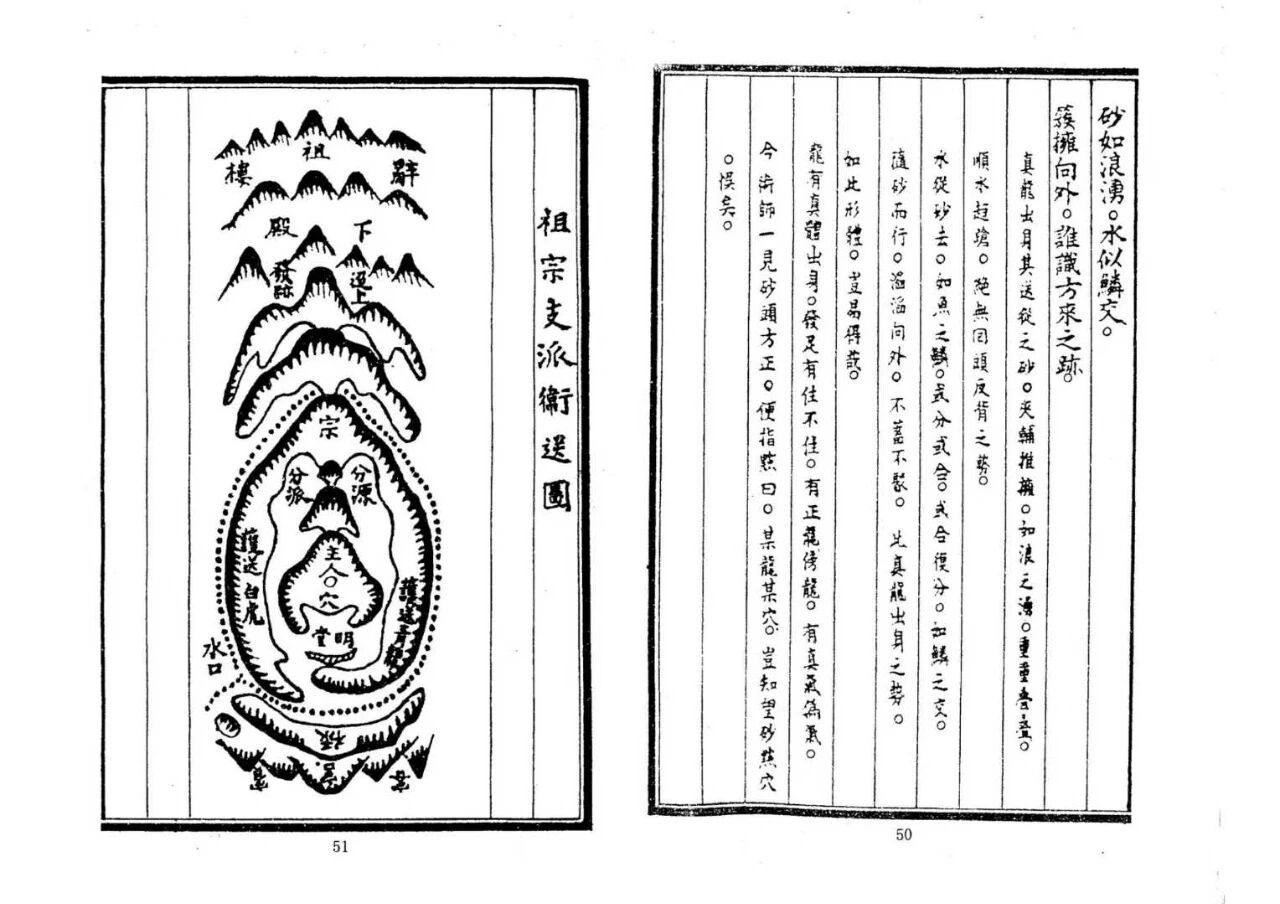 砂如浪湧。水似鱗交。
簇擁向外。誰識方來之跡。
真龍出身其送從之砂。夾輔推擁。如浪之湧。重重叠叠。
順水趨蹌。絕無回頭反背之勢。
水從砂去。如魚之鱗。或分或合。或合復分。如鱗之交。
隨砂而行。滔滔向外。不蓄不聚。此真龍出身之勢。
如此形體。豈易得哉。
龍有真體出身。發足有住不住。有正龍傍龍。有真氣為氣。
今術師一見砂頭方正。便指點曰。某龍某穴。豈知望砂點穴
。悞矣。
50
祖宗支派衛送圖
辭
祖
樓
下
殿
發跡
宗
分源
分派
主人
穴
明堂
護送青龍
護送白虎
水口
51